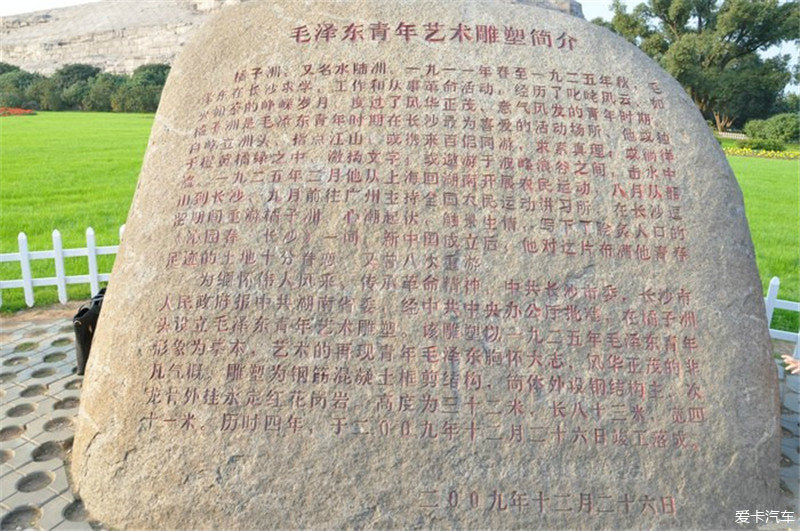 毛泽东青年艺术雕塑简介
橘子洲、又名水陆洲。一九一一年春至一九二五年秋，毛
泽东在长沙求学、工作和从事革命活动，经历了叱咤风云、如
火如荼的峥嵘岁月，度过了风华正茂、意气风发的青年时期。
橘子洲是毛泽东青年时期在长沙最为喜爱的活动场所，他或独
自屹立洲头，指点江山，或携来百侣同游，求索真理，或徜徉
于橙黄橘绿之中，激扬文字，或遨游于波峰浪谷之间，击水中
流。一九二五年二月他从上海回湖南开展农民运动，八月从韶
山到长沙，九月前往广州主持全国农民运动讲习所。在长沙逗
留期间重游橘子洲，心潮起伏，触景生情，写下了脍炙人口的
《沁园春 长沙》一词。新中国成立后，他对这片布满他青春
足迹的土地十分眷恋，又曾八次重游。
为缅怀伟人风采，传承革命精神，中共长沙市委、长沙市
人民政府报中共湖南省委，经中共中央办公厅批准，在橘子洲
头设立毛泽东青年艺术雕塑。该雕塑以一九二五年毛泽东青年
形象为摹本，艺术的再现青年毛泽东胸怀大志，风华正茂的非
凡气概。雕塑为钢筋混凝土框剪结构，简体外设钢结构主、次
龙骨外挂永定红花岗岩，高度为三十二米，长八十三米，宽四
十一米。历时四年，于二00九年十二月二十六日竣工落成。
二00九年十二月二十六日
爱卡汽车